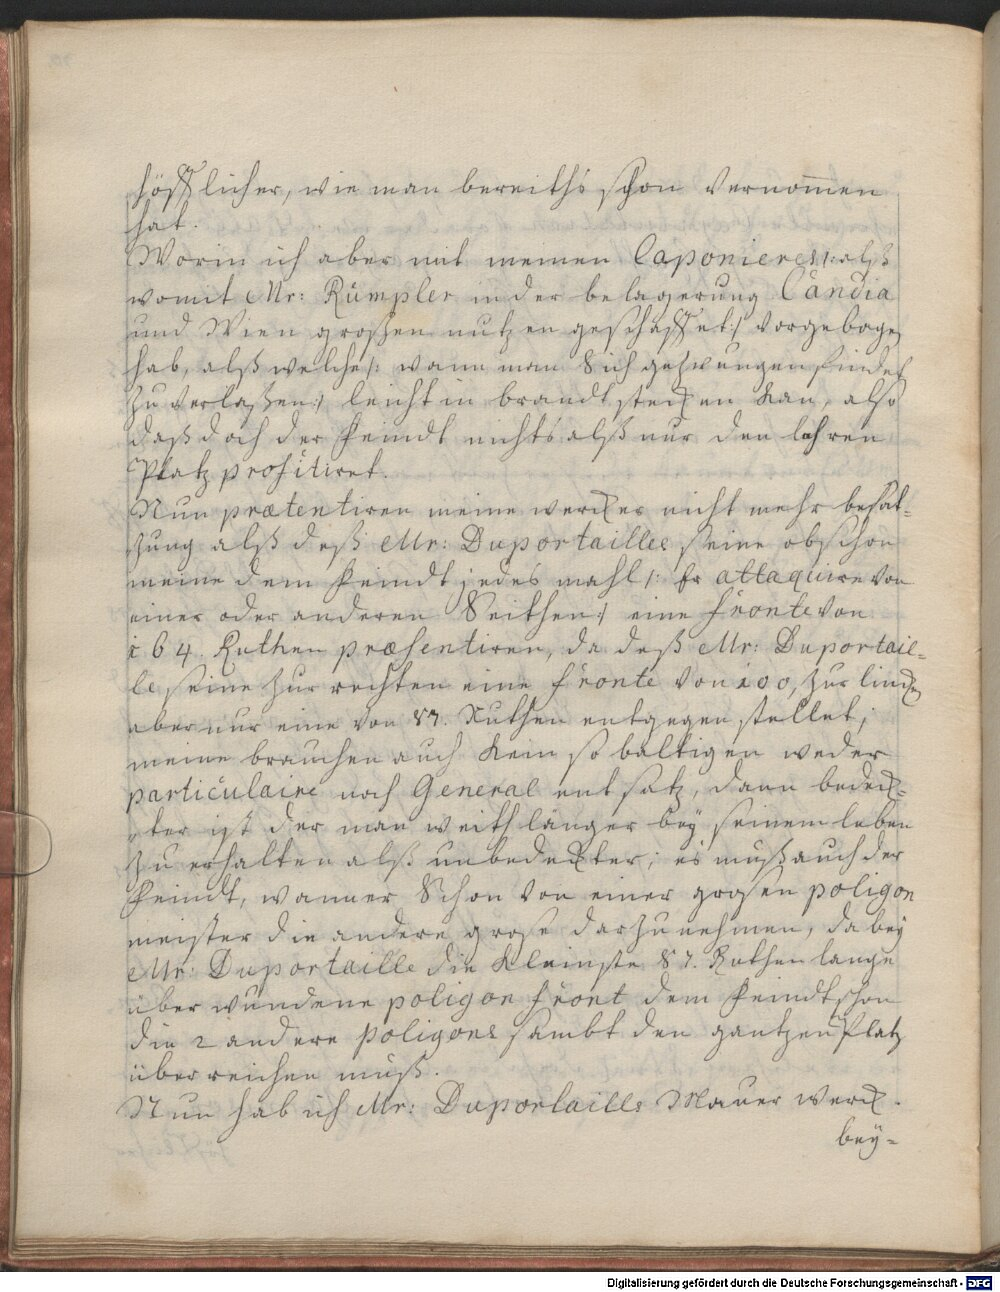 höfflicher, wie man bereiths schon vernom̄en
hat.
Worin ich aber mit meinen Caponieres /: alß
womit Mr: Rümpler in der belagerung Candia
und Wien großen nutzen geschaffet :/ vorgeboge
hab, alß welche /: wann man Sich gezwungen findet
zu verlaßen :/ leicht in brandt stecken kan, also
daß doch der feindt nichts alß nur den lehren
Platz profitiret.
Nun prætentiren meine wercker nicht mehr besat-
zung alß deß Mr: Duportailles seine obschon
meine dem feindt jedes mahl /: Er attaquire von
einer oder anderen Seithen :/ eine fronte von
164. Ruthen præsentiren, da deß Mr: Duportail-
le seine zur rechten eine fronte von 100, zur lincken
aber nur eine von 87. Ruthen entgegen stellet;
meine brauchen auch kein so baltigen weder
particulaire noch General entsatz, dann bedeck-
ter ist der man weith länger beÿ seinem leben
zu erhalten alß unbedeckter; es muß auch der
feindt, wann er Schon von einer grosen poligon
meister die andere grose darzu nehmen, da beÿ
Mr: Duportaille die kleinste 87. Ruthen lange
überwundene poligon front dem feindt schon
die 2 andere poligons sambt den gantzen Platz
überreichen muß.
Nun hab ich Mr: Duportaills Mauer werck
beÿ-
Digitalisierung gefördert durch die Deutsche Forschungsgemeinschaft - DFG